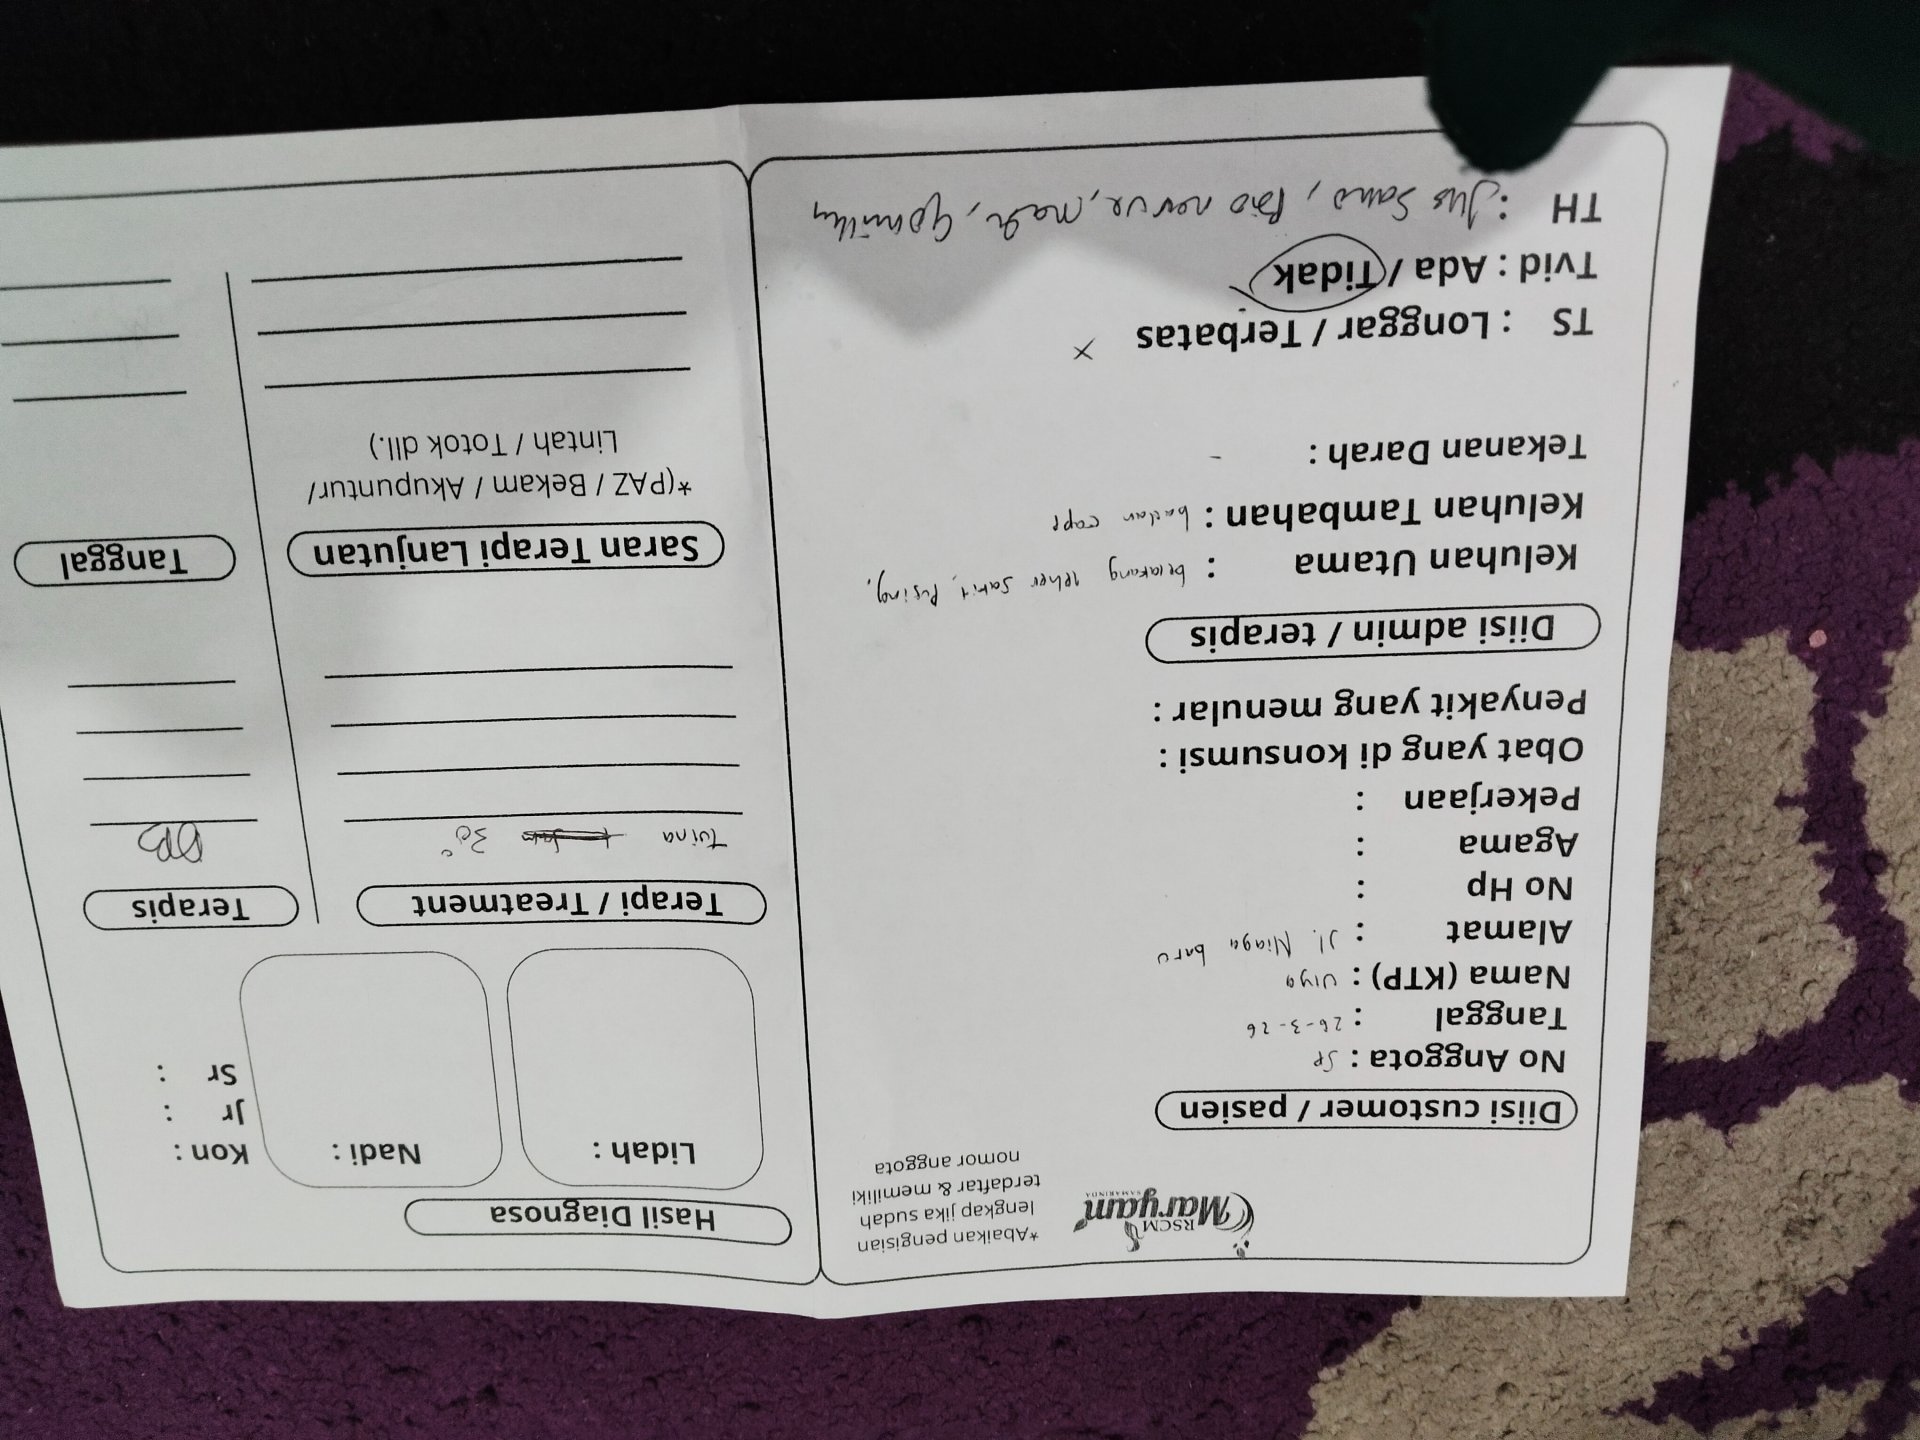 RSCM
Maryam
SAMARINDA
*Abaikan pengisian
lengkap jika sudah
terdaftar & memiliki
nomor anggota
Diisi customer / pasien
No Anggota : SP
Tanggal : 26-3-26
Nama (KTP) : ulya
Alamat : Jl. Niaga baru
No Hp :
Agama :
Pekerjaan :
Obat yang di konsumsi :
Penyakit yang menular :
Diisi admin / terapis
Keluhan Utama : belakang leher sakit, Pusing,
Keluhan Tambahan : badan cape
Tekanan Darah : -
TS : Longgar / Terbatas ×
Tvid : Ada / Tidak
TH : Jus
Hasil Diagnosa
Lidah :
Nadi :
Kon :
Jr :
Sr :
Terapi / Treatment
Terapis
Tuina 30
Saran Terapi Lanjutan
Tanggal
*(PAZ / Bekam / Akupuntur/
Lintah / Totok dll.)